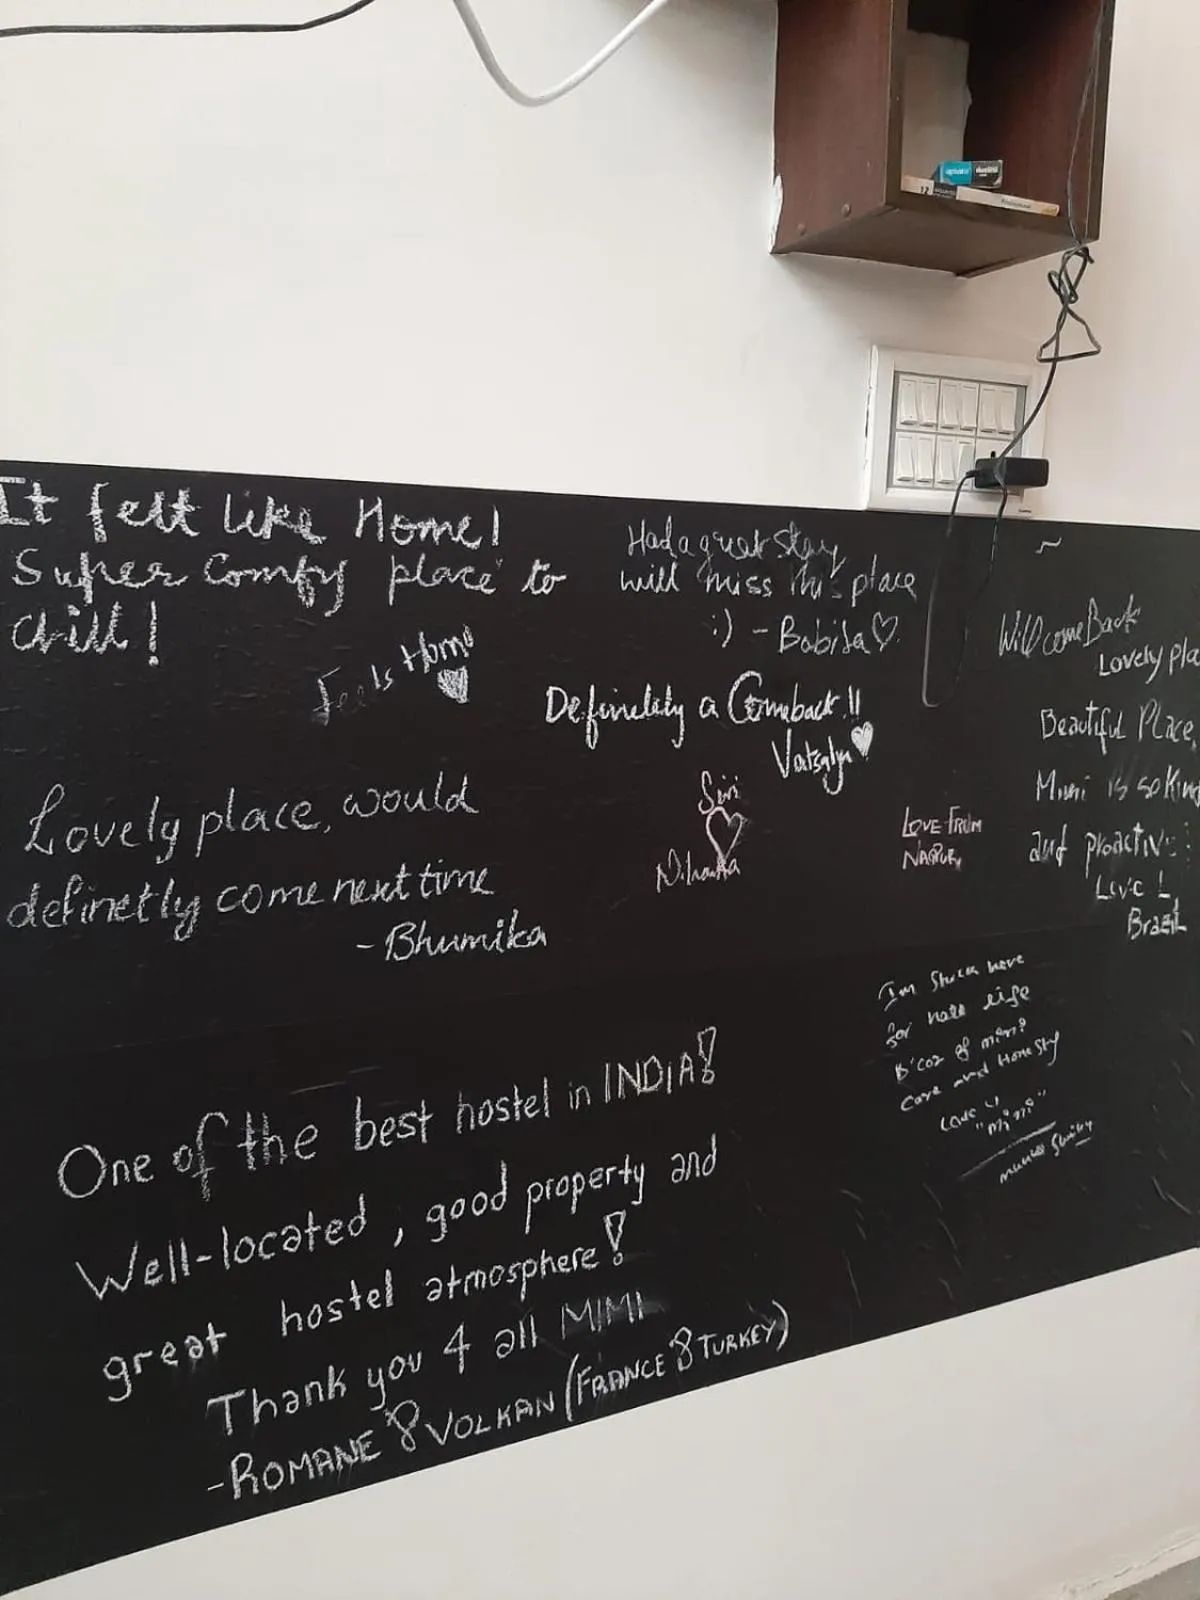 It felt like Home!
Super Comfy place to
chill!
Feels Home
Had a great stay
will miss this place
:) - Babita
Definetely a Comeback!!
Vatsalya
Will come Back
Lovely pla
Beautiful Place,
Mimi is so Kind
and proactive!
Love!
Brazil
Lovely place, would
definetly come next time
- Bhumika
Siri
Niharika
LOVE FROM
NAGPUR
I'm Stuck here
for half life
B'coz of mimi
Care and Honesty
Love u
"mimi"
One of the best hostel in INDIA!
Well-located, good property and
great hostel atmosphere!
Thank you 4 all MIMI
- ROMANE & VOLKAN (FRANCE & TURKEY)